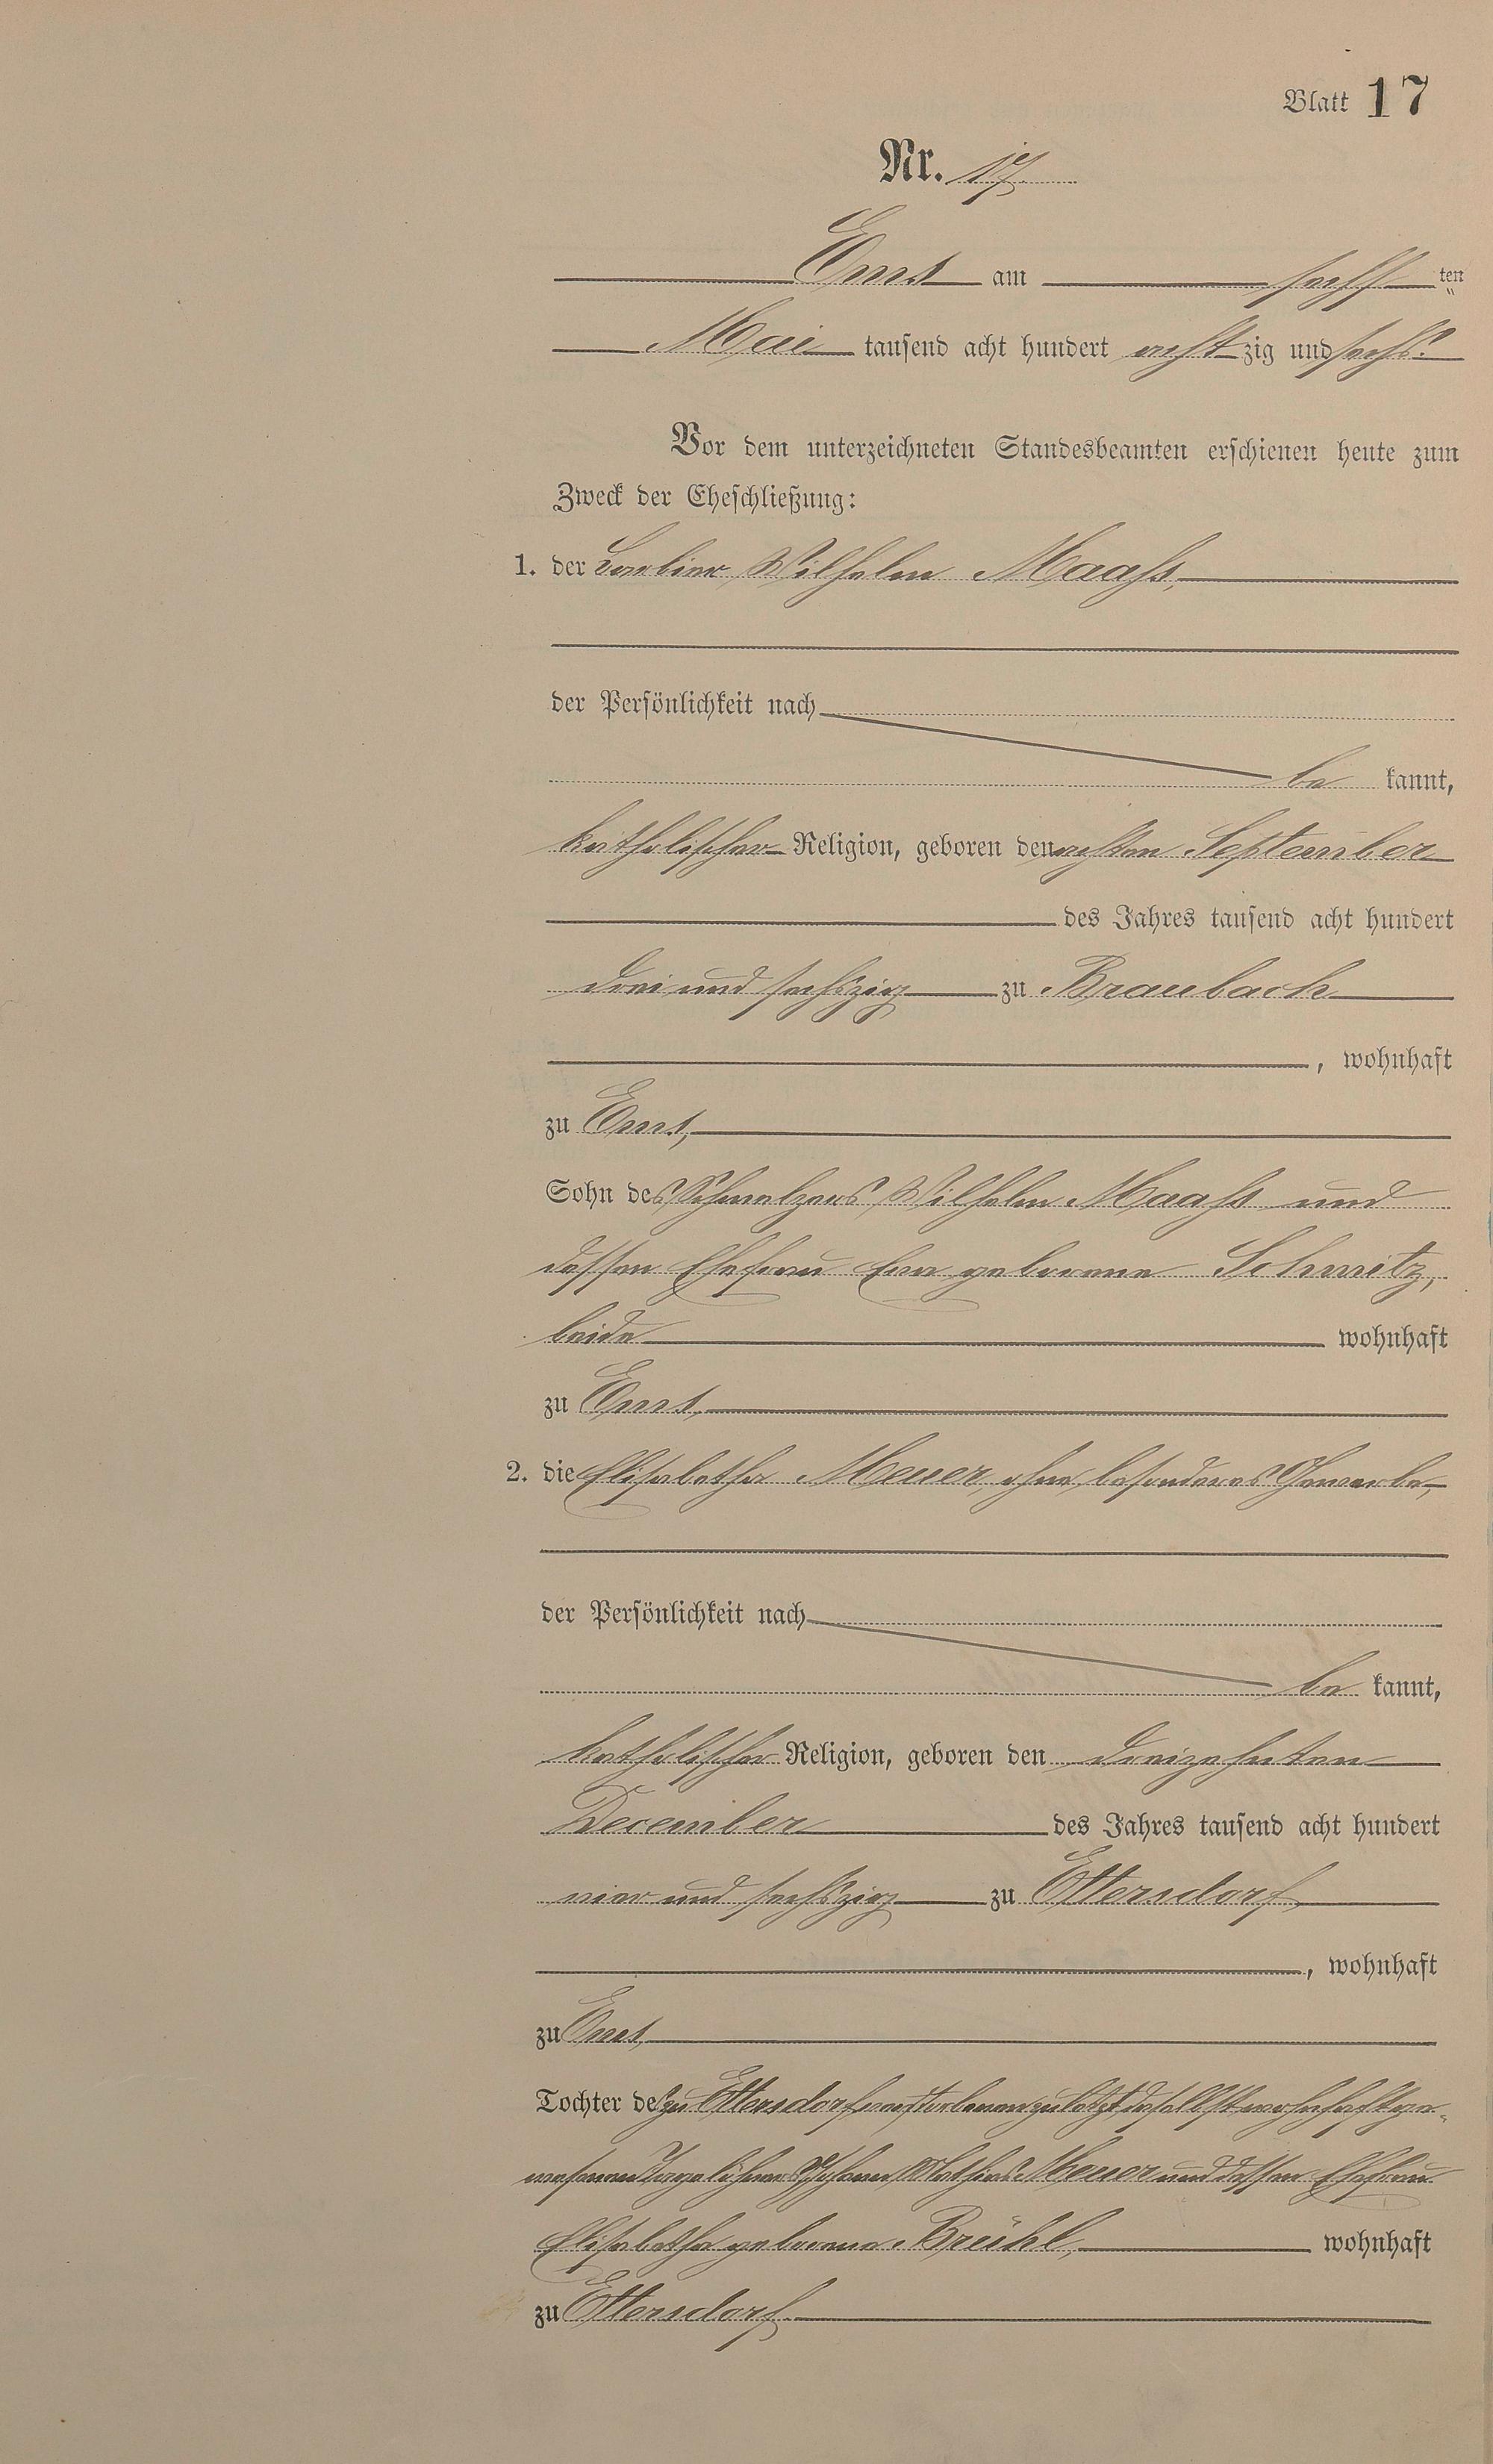 Blatt 17
Nr. 17.
Ems am sechsten
Mai tausend acht hundert achtzig und sechs.
Vor dem unterzeichneten Standesbeamten erschienen heute zum
Zweck der Eheschließung:
1. der Barbier Wilhelm Maaß,
der Persönlichkeit nach
be kannt,
katholischer Religion, geboren den achten September
des Jahres tausend acht hundert
drei und sechszig zu Braubach
, wohnhaft
zu Ems,
Sohn des Schmelzers Wilhelm Maaß und
dessen Ehefrau Eva geborene Schmitz,
beide wohnhaft
zu Ems,
2. die Elisabetha Meuer, ohne besonderes Gewerbe,
der Persönlichkeit nach
be kannt,
katholischer Religion, geboren den dreizehnten
December des Jahres tausend acht hundert
vier und sechszig zu Ettersdorf
, wohnhaft
zu Ems,
Tochter des zu Ettersdorf verstorbenen zuletzt daselbst wohnhaft ge-
wesenen Tagelöhners Johann Mathias Meuer und dessen Ehefrau
Elisabetha geborene Brühl, wohnhaft
zu Ettersdorf.